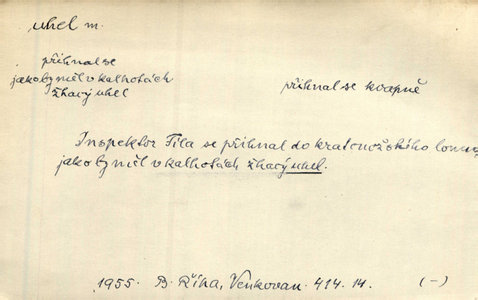 uhel m.
přihnal se
jakoby měl v kalhotách
žhavý uhel
přihnal se kvapně
Inspektor Fíla se přihnal do kratonožského lomu,
jakoby měl v kalhotách žhavý uhel.
1955. B. Říha, Venkovan. 414. 14. (-)